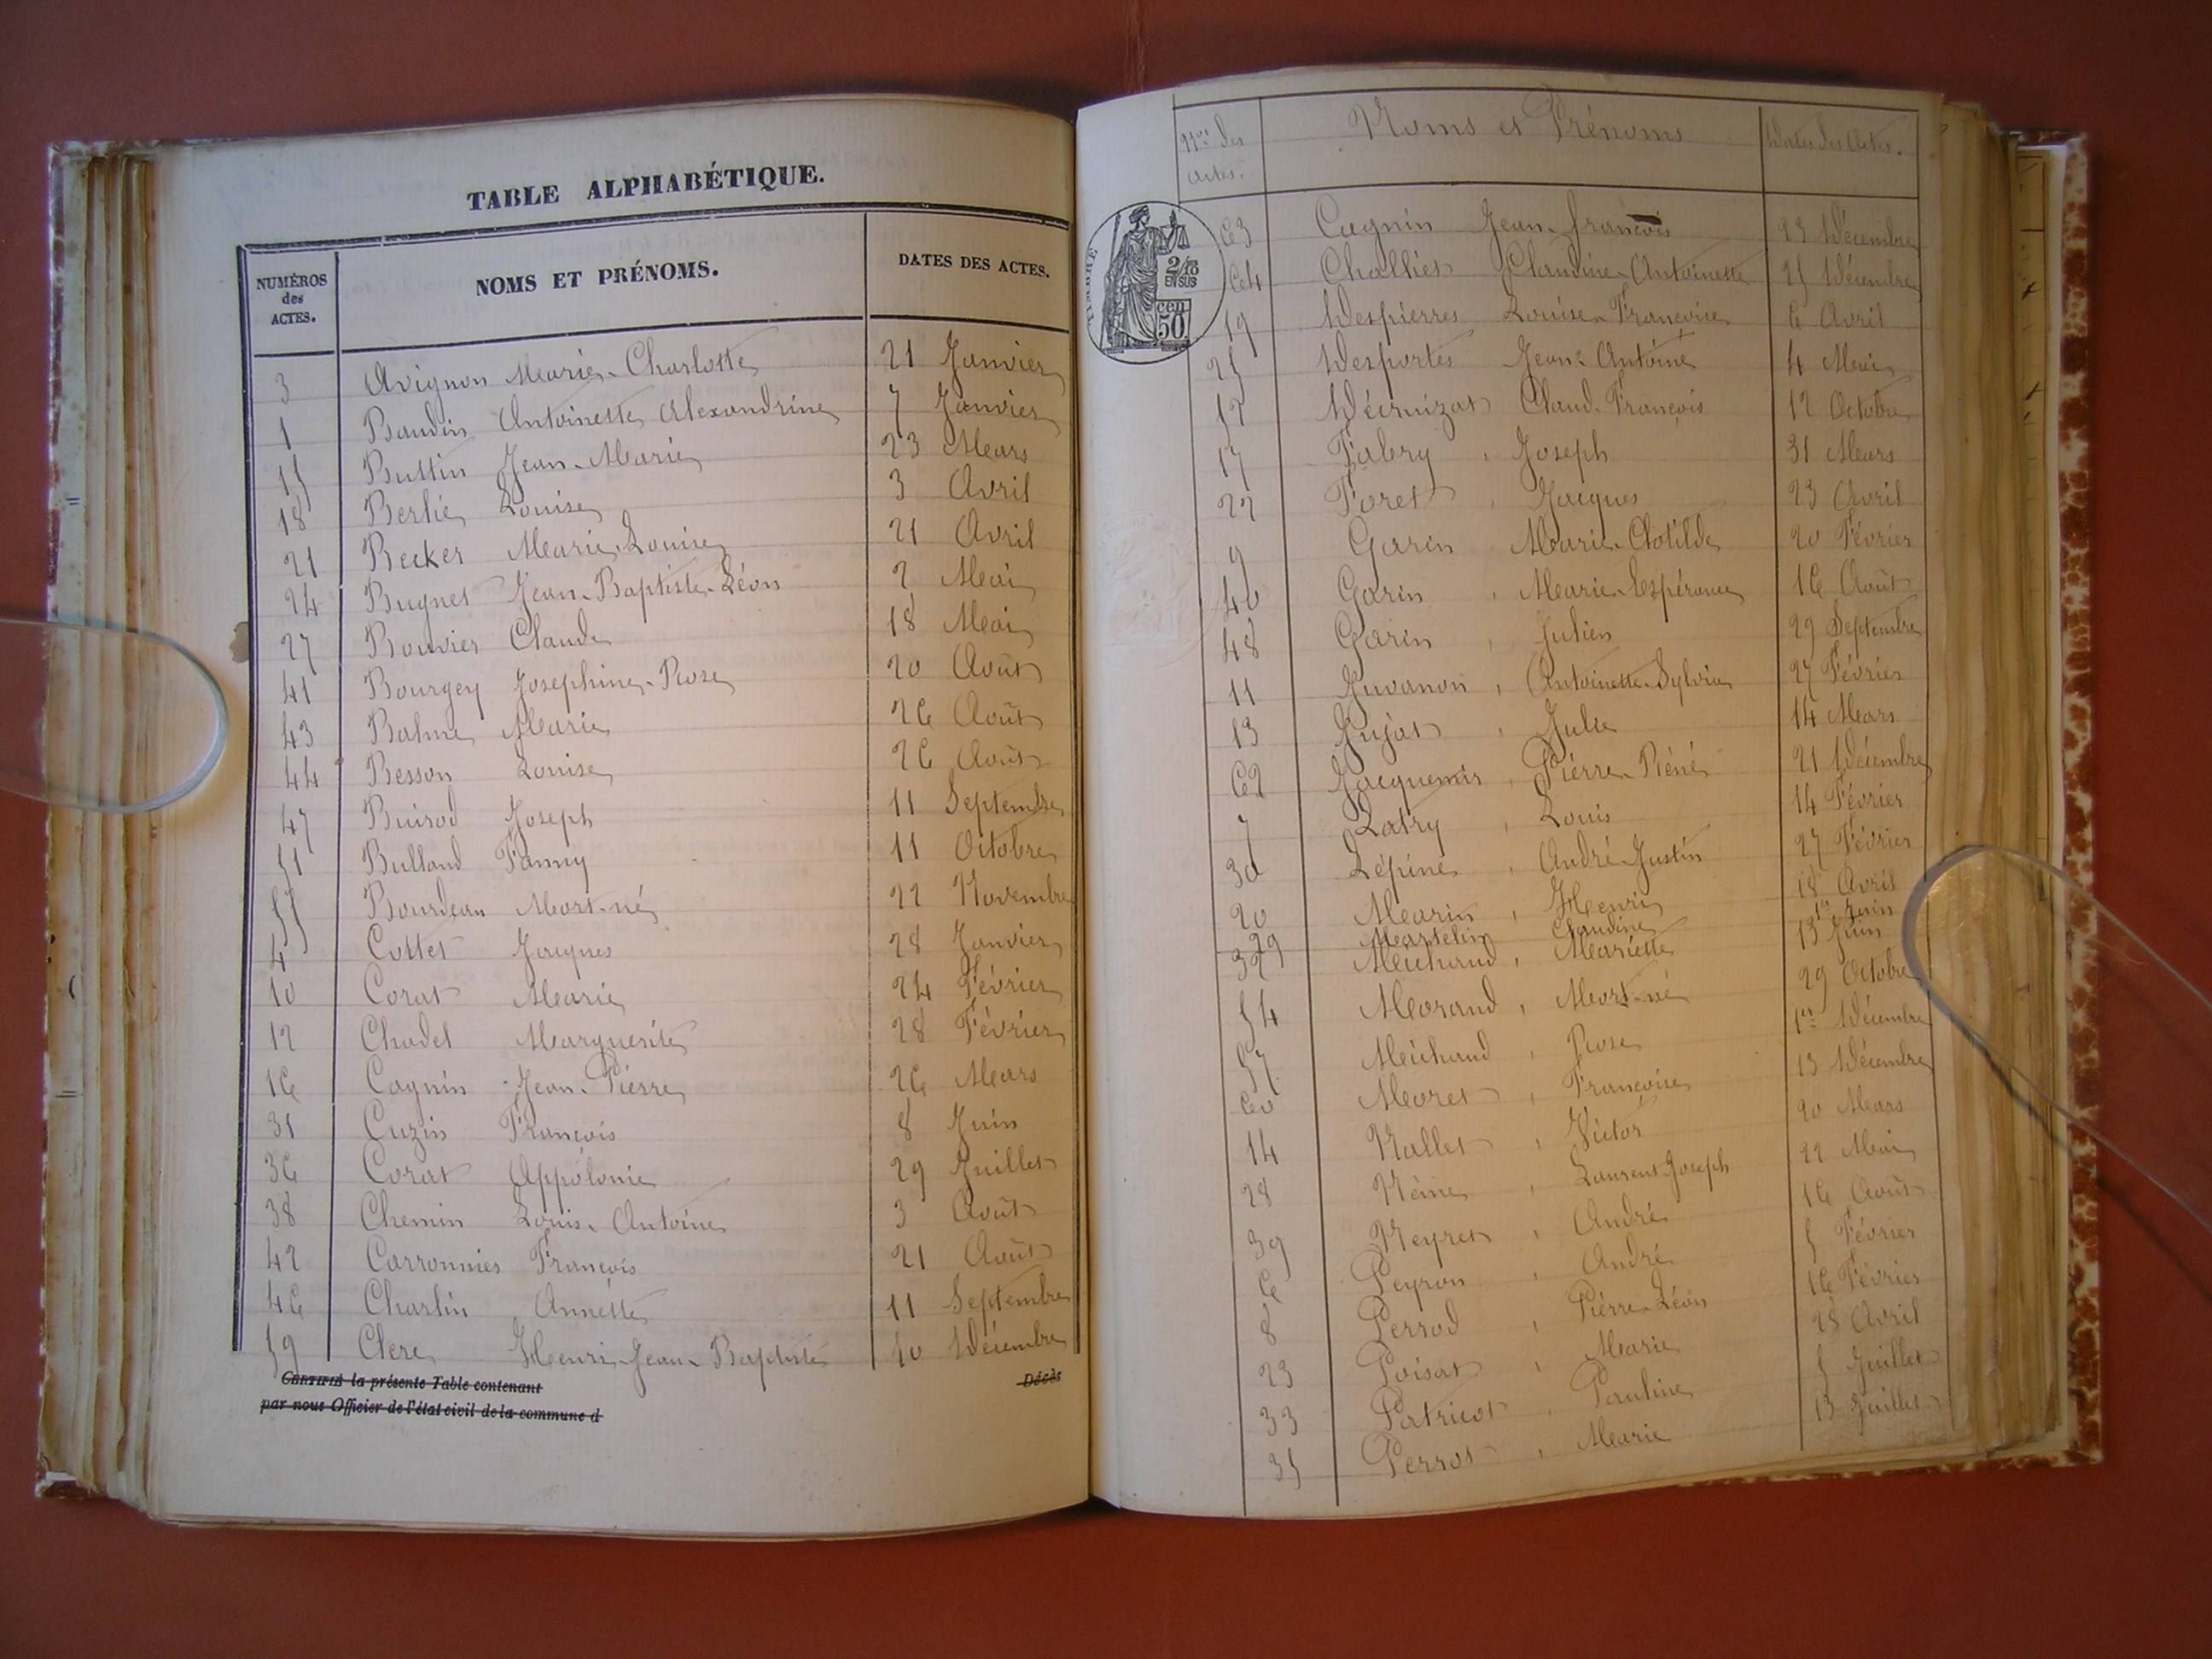 TABLE ALPHABÉTIQUE.
NUMÉROS des ACTES. NOMS ET PRÉNOMS. DATES DES ACTES.
3 Avignon Marie-Charlotte 21 Janvier
1 Baudin Antoinette Alexandrine 7 Janvier
15 Buttin Jean-Marie 23 Mars
18 Berlié Louise 3 Avril
21 Becker Marie-Louise 21 Avril
24 Bugnet Jean-Baptiste-Léon 2 Mai
27 Bouvier Claude 18 Mai
41 Bourgey Josephine-Rose 20 Août
43 Balme Marie 26 Août
44 Besson Louise 26 Août
47 Buirod Joseph 11 Septembre
51 Bulland Fanny 11 Octobre
55 Bourdeau Mort-né 22 Novembre
4 Cottet Jacques 28 Janvier
10 Corat Marie 24 Février
12 Chadel Marguerite 28 Février
16 Cagnin Jean-Pierre 26 Mars
31 Cuzin François 8 Juin
36 Corat Appolonie 29 Juillet
38 Chemin Louis-Antoine 3 Août
42 Carronnier François 21 Août
46 Charlin Annette 11 Septembre
59 Clerc Henri-Jean-Baptiste 10 Décembre
CERTIFIÉ la présente Table contenant Décès
par nous Officier de l'état civil de la commune d
Nos des actes. Noms et Prénoms Dates des Actes.
TIMBRE
2/10 EN SUS
50 cen
63 Cagnin Jean-françois 23 Décembre
64 Challier Claudine-Antoinette 25 Décembre
19 Despierres Louise-Françoise 6 Avril
25 Desportes Jean-Antoine 4 Mai
12 Décrnizat Claud-François 12 Octobre
17 Fabry, Joseph 31 Mars
22 Foret, Jacques 23 Avril
9 Garin, Marie-Clotilde 20 Février
40 Garin, Marie-Espérance 16 Août
48 Garin, Julien 29 Septembre
11 Juvanon, Antoinette-Sylvie 27 Février
13 Jujat, Julie 14 Mars
62 Jacquemir, Pierre-Réné 21 Décembre
7 Latry, Louis 14 Février
30 Lépine, André-Justin 27 Février
20 Marin, Henri 18 Avril
29 Martelin Claudine 1er Juin
32 Michaud, Mariette 13 Juin
54 Morand, Mort-né 29 Octobre
57 Michaud, Rose 1er Décembre
60 Moret, Françoise 13 Décembre
14 Nallet, Victor 20 Mars
28 Néme, Laurent Joseph 22 Mai
39 Neyret, André 16 Août
6 Peyron, André 5 Février
8 Perrod, Pierre-Léon 16 Février
23 Poisat, Marie 28 Avril
33 Patricot, Pauline 5 Juillet
35 Perrot, Marie 13 Juillet